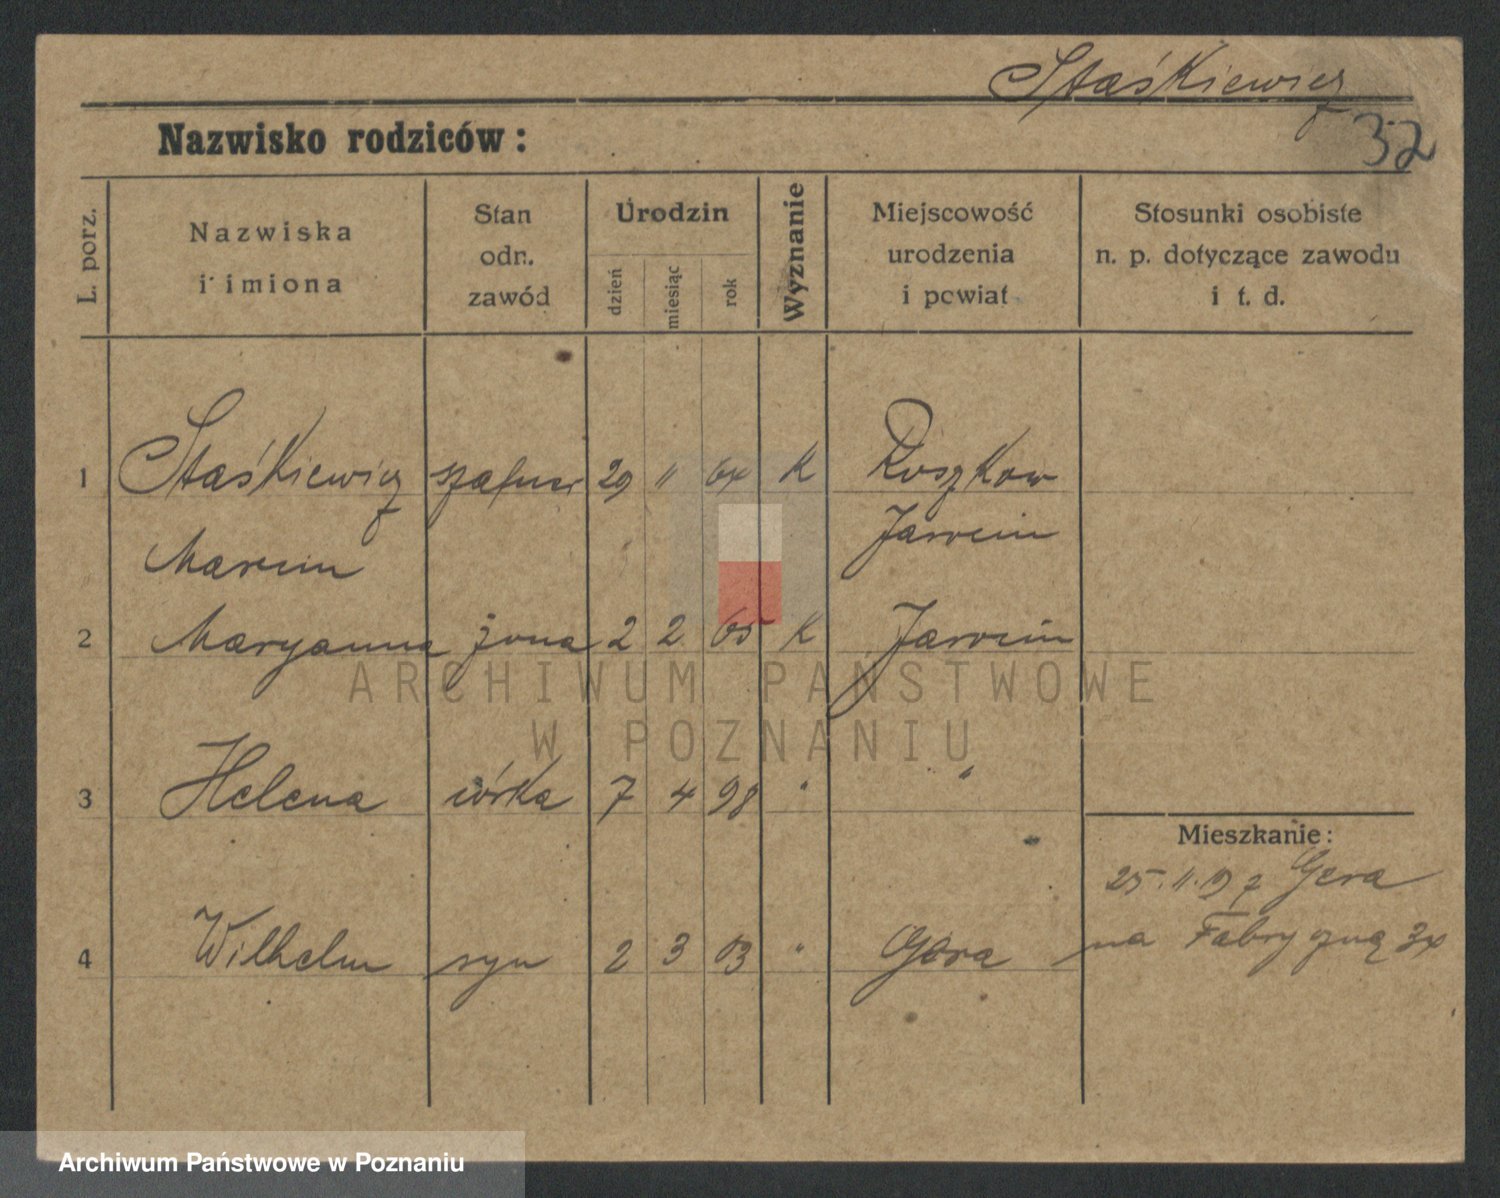 Staśkiewicz
32
Nazwisko rodziców:
L. porz.
Nazwiska
i imiona
Stan
odn.
zawód
Urodzin
dzień
miesiąc
rok
Wyznanie
Miejscowość
urodzenia
i powiat
Stosunki osobiste
n. p. dotyczące zawodu
i t. d.
1 Staśkiewicz 29 11 64 K Roszkow
Marcin Jarocin
2 Maryanna żona 2 2 65 K Jarocin
ARCHIWUM PAŃSTWOWE
W POZNANIU
3 Helena córka 7 4 98 " "
Mieszkanie:
25.11.197 Gora
4 Wilhelm syn 2 3 03 " Góra
na Fabryczną
Archiwum Państwowe w Poznaniu